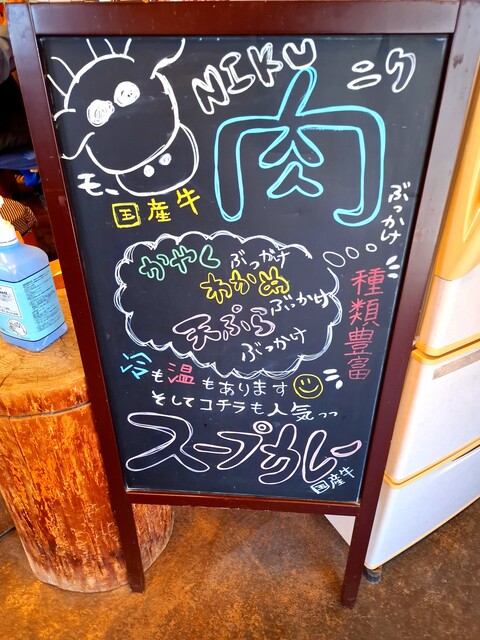 NIKU ニク
肉
モ、
国産牛
ぶっかけ
かやくぶっかけ
わかめぶっかけ
天ぷらぶっかけ
種類豊富
冷も温もあります
そしてコチラも人気っっ
スープカレー
国産牛